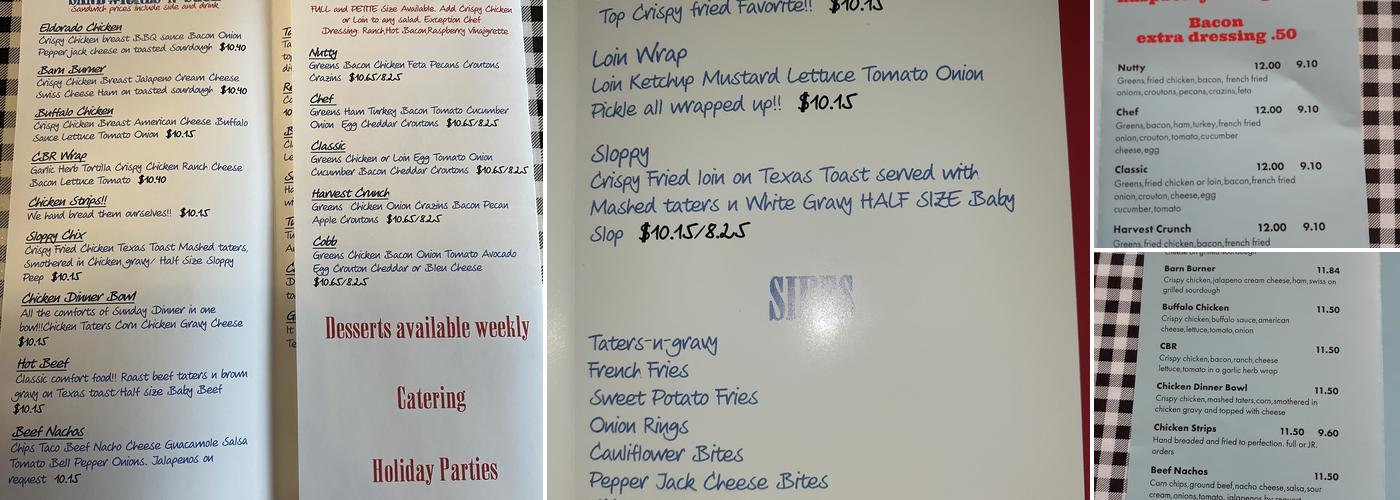 Sandwich prices include side and drink
Eldorado Chicken
Crispy Chicken breast BBQ sauce Bacon Onion
Pepper jack cheese on toasted Sourdough $10.40
Barn Burner
Crispy Chicken Breast Jalapeno Cream Cheese
Swiss Cheese Ham on toasted sourdough $10.40
Buffalo Chicken
Crispy Chicken Breast American Cheese Buffalo
Sauce Lettuce Tomato Onion $10.15
CBR Wrap
Garlic Herb Tortilla Crispy Chicken Ranch Cheese
Bacon Lettuce Tomato $10.40
Chicken Strips!!
We hand bread them ourselves!! $10.15
Sloppy Chix
Crispy Fried Chicken Texas Toast Mashed taters,
Smothered in Chicken gravy/ Half Size Sloppy
Peep $10.15
Chicken Dinner Bowl
All the comforts of Sunday Dinner in one
bowl!!Chicken Taters Corn Chicken Gravy Cheese
$10.15
Hot Beef
Classic comfort food!! Roast beef taters n brown
gravy on Texas toast/Half size Baby Beef
$10.15
Beef Nachos
Chips Taco Beef Nacho Cheese Guacamole Salsa
Tomato Bell Pepper Onions. Jalapenos on
request 10.15
FULL and PETITE Size Available. Add Crispy Chicken
or Loin to any salad. Exception Chef
Dressing: Ranch,Hot Bacon,Raspberry Vinaigrette
Nutty
Greens Bacon Chicken Feta Pecans Croutons
Crazins $10.65/8.25
Chef
Greens Ham Turkey Bacon Tomato Cucumber
Onion Egg Cheddar Croutons $10.65/8.25
Classic
Greens Chicken or Loin Egg Tomato Onion
Cucumber Bacon Cheddar Croutons $10.65/8.25
Harvest Crunch
Greens Chicken Onion Crazins Bacon Pecan
Apple Croutons $10.65/8.25
Cobb
Greens Chicken Bacon Onion Tomato Avocado
Egg Crouton Cheddar or Bleu Cheese
$10.65/8.25
Desserts available weekly
Catering
Holiday Parties
Top Crispy fried Favorite!! $10.15
Loin Wrap
Loin Ketchup Mustard Lettuce Tomato Onion
Pickle all wrapped up!! $10.15
Sloppy
Crispy Fried loin on Texas Toast served with
Mashed taters n White Gravy HALF SIZE Baby
Slop $10.15/8.25
SIDES
Taters-n-gravy
French Fries
Sweet Potato Fries
Onion Rings
Cauliflower Bites
Pepper Jack Cheese Bites
Bacon
extra dressing .50
Nutty 12.00 9.10
Greens,fried chicken,bacon, french fried
onions,croutons,pecans,crazins,feta
Chef 12.00 9.10
Greens,bacon,ham,turkey,french fried
onion,crouton,tomato,cucumber
cheese,egg
Classic 12.00 9.10
Greens,fried chicken or loin,bacon,french fried
onion,croutons,cheese,egg
cucumber,tomato
Harvest Crunch 12.00 9.10
Greens,fried chicken,bacon,french fried
Barn Burner 11.84
Crispy chicken,jalapeno cream cheese,ham,swiss on
grilled sourdough
Buffalo Chicken 11.50
Crispy chicken,buffalo sauce,american
cheese,lettuce,tomato,onion
CBR 11.50
Crispy chicken,bacon,ranch,cheese
lettuce,tomato in a garlic herb wrap
Chicken Dinner Bowl 11.50
Crispy chicken,mashed taters,corn,smothered in
chicken gravy and topped with cheese
Chicken Strips 11.50 9.60
Hand breaded and fried to perfection. full or JR.
orders
Beef Nachos 11.50
Corn chips,ground beef,nacho cheese,salsa,sour
cream,onions,tomato, jalapenos by request